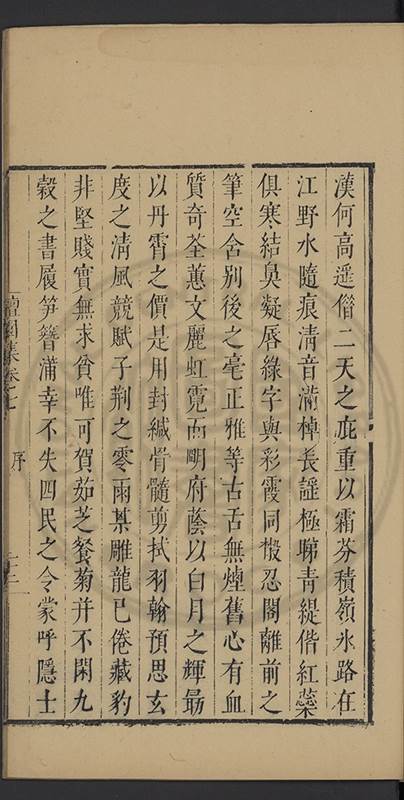 漢何高遥偺二天之庇重以霜芬積嶺氷路在
江野水隨痕清音滿棹長謡極睇青緹偕紅蘂
俱寒結臭凝唇綠字與彩霞同椴忍閣離前之
筆空舍别後之毫正雅等古舌無煙舊心有血
質奇荃蕙文麗虹霓而明府蔭以白月之輝勗
以丹霄之價是用封緘骨髓剪拭羽翰預思玄
度之清風競賦子荆之零雨某雕龍已倦藏豹
非堅賤實無求貧唯可賀茹芝餐菊并不閑九
穀之書履笋簪蒲幸不失四民之令蒙呼隱士
集卷七
序